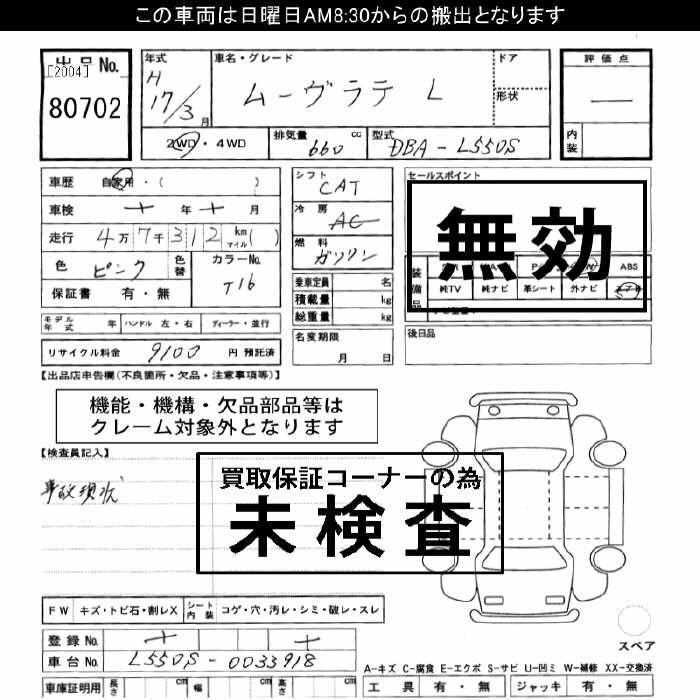 この車両は日曜日AM8:30からの搬出となります
出品No.
[2004]
80702
年式 H 17/3月
車名・グレード ムーヴラテ L
ドア
形状
評価点
内装
2WD・4WD
排気量 660 cc
型式 DBA-L550S
車歴 自家用・( )
車検 年 月
走行 4万7千312 km マイル( )
色 ピンク
色替
カラーNo. T16
保証書 有・無
シフト CAT
冷房 AC
燃料 ガソリン
乗車定員 名
積載量 kg
総重量 kg
セールスポイント
無効
装備品
ABS
純TV 純ナビ 革シート 外ナビ
モデル年式 年 ハンドル 左・右 ディーラー・並行
リサイクル料金 9100 円 預託済
名変期限
月 日
後日品
【出品店申告欄(不良箇所・欠品・注意事項等)】
機能・機構・欠品部品等は
クレーム対象外となります
【検査員記入】
事故現状
買取保証コーナーの為
未検査
FW キズ・トビ石・割レX シート内装 コゲ・穴・汚レ・シミ・破レ・スレ
登録No.
車台No. L550S-0033918
車庫証明用 長さ cm 幅 cm 高さ cm
スペア
A-キズ C-腐食 E-エクボ S-サビ U-凹ミ W-補修 XX-交換済
工具 有・無 ジャッキ 有・無